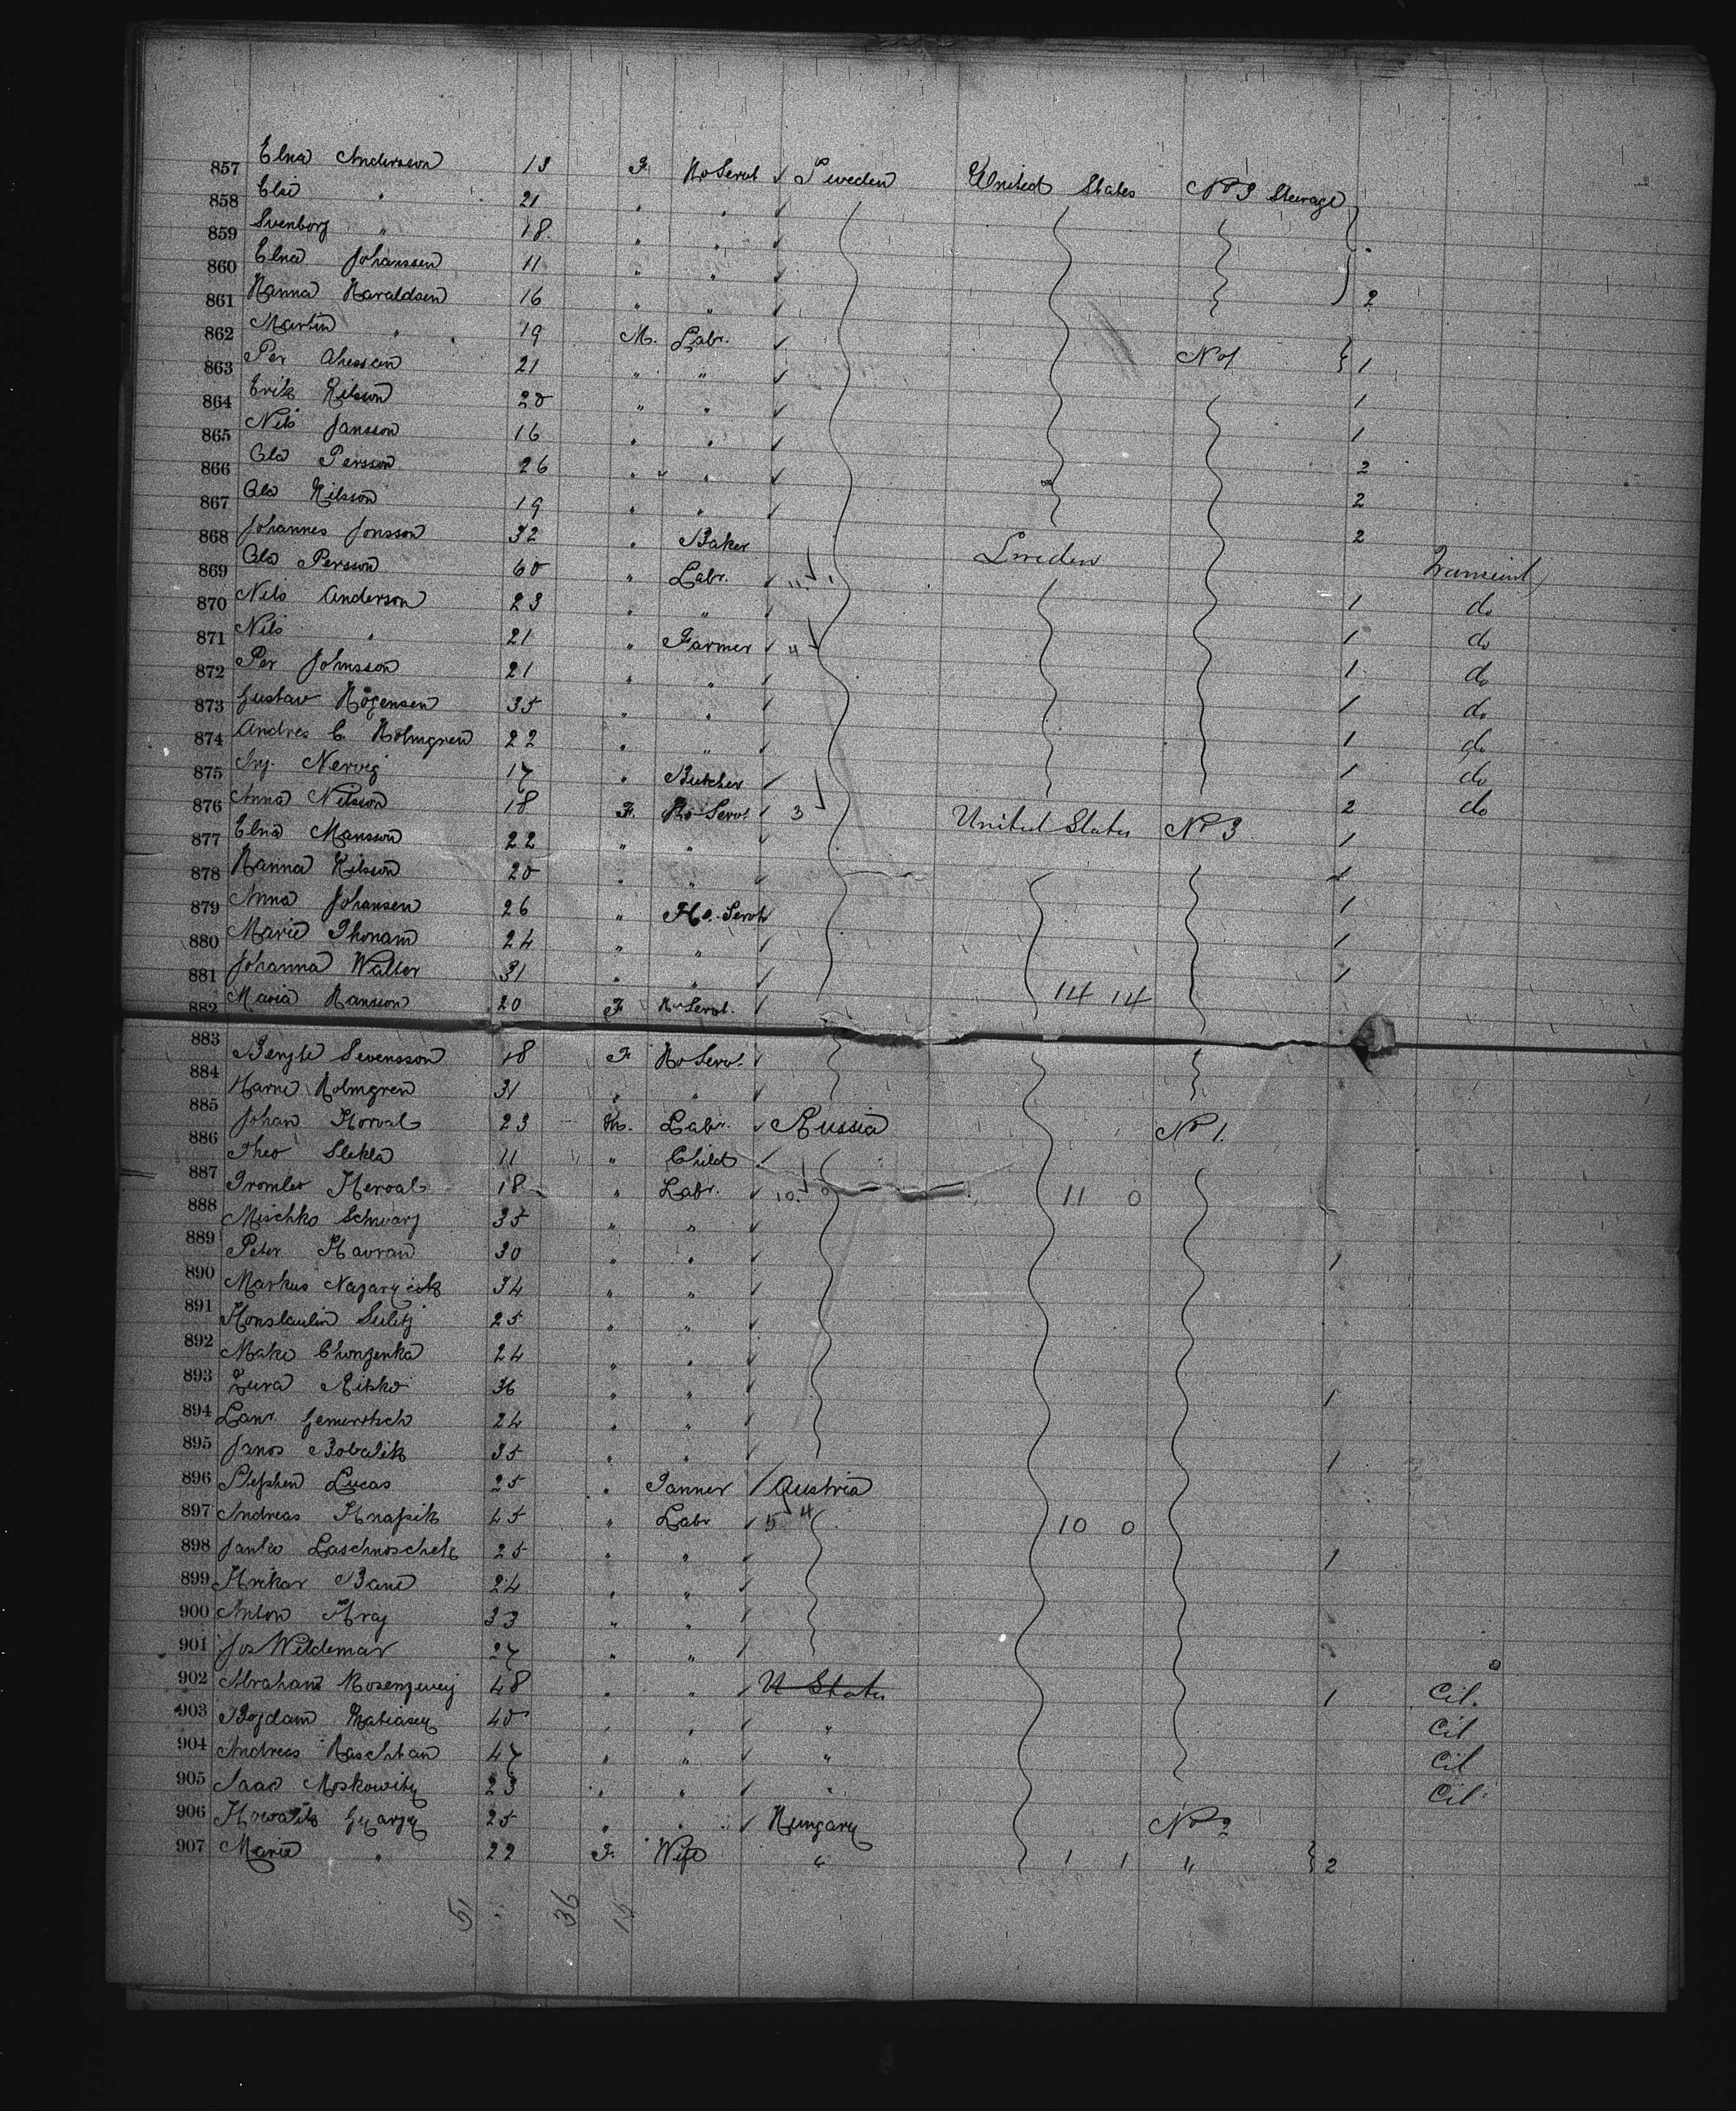 857 Elna Andersson 13 F. Ho Servt ✓ Sweden United States No 3 Steerage
858 Elsi " 21 " " ✓
859 Svenborg " 18 " " ✓
860 Elna Johansson 11 " " ✓
861 Hanna Haraldsen 16 " " ✓ 2
862 Martin " 19 M. Labr. ✓
863 Per 21 " " ✓ No 1 1
864 Erik Nilsson 20 " " ✓ 1
865 Nils Jansson 16 " " ✓ 1
866 Ola Persson 26 " " ✓ 2
867 Ola Nilsson 19 " " ✓ 2
868 Johannes Jonsson 32 " Baker 2
869 Ola Persson 60 " Labr. ✓ Sweden Transient
870 Nils Anderson 23 " " ✓ 1 do
871 Nils " 21 " Farmer ✓ 4 1 do
872 Per Johnsson 21 " " ✓ 1 do
873 Gustav Högensen 35 " " ✓ 1 do
874 Andres C. Holmgren 22 " " ✓ 1 do
875 Inj. Nervig 17 " Butcher ✓ 1 do
876 Anna Nilsson 18 F. Ho Servt ✓ 3 2 do
877 Elna Mansson 22 " " ✓ United States No 3 1
878 Hanna Nilsson 20 " " ✓ 1
879 Anna Johansen 26 " Ho. Servt ✓ 1
880 Marie Thonam 24 " " ✓ 1
881 Johanna Walter 31 " " ✓ 1
882 Maria Hansson 20 F Ho Servt. ✓ 14 14
883 Bengte Svensson 18 F. Ho Servt. ✓
884 Karna Holmgren 31 " " ✓
885 Johan Horvat 23 M. Labr. ✓ Russia No 1.
886 Theo Slekla 11 " Child ✓
887 Hervat 18 " Labr. ✓ 10 11 0
888 Mischko Schwarz 35 " " ✓
889 Peter Havran 30 " " ✓ 1
890 Markus 34 " " ✓
891 Konstantin 25 " " ✓
892 Mako Chonzenka 24 " " ✓
893 Zura Rikko 36 " " ✓ 1
894 24 " " ✓
895 Janos Bobalik 35 " " ✓ 1
896 Stephen Lucas 25 " Tanner ✓ Austria
897 Andreas Knapik 45 " Labr ✓ 5 4 10 0
898 Janko Laschnoschek 25 " " ✓ 1
899 Hrikar Bane 24 " " ✓
900 Anton Kraj 33 " " ✓
901 Jos Wildemar 27 " " ✓
902 Abraham Rosenzweij 48 " " ✓ U States 1 Cit.
903 Bogdam Matiasey 40 " " ✓ " Cit
904 Andreas Raschtan 47 " " ✓ " Cit
905 Isaac Moskowitz 23 " " ✓ " Cit
906 25 " " ✓ Hungary No 2
907 Marie " 22 F. Wife " 1 1 " 2
51 36 15